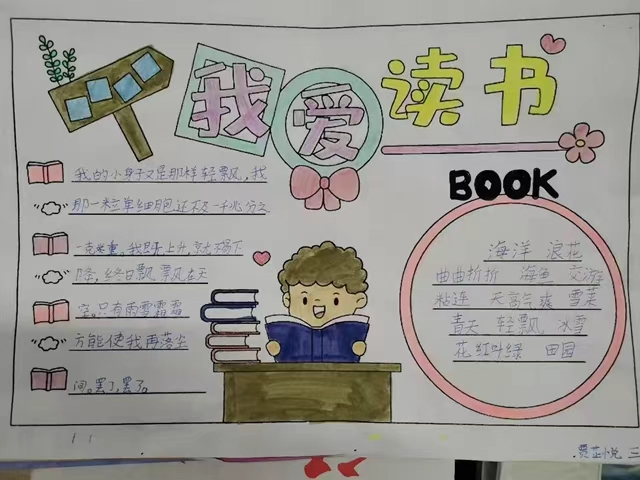 我爱读书
BOOK
我的小身子又是那样轻飘,我
那一粒单细胞还不及一千兆分之
一克米重。我既上升,就
终日飘飘在天
空。只有雨雪霜露
方能使我再落尘
间。罢了,罢了。
海洋 浪花
曲曲折折 海鱼 交游
粘连 天高气爽 雪花
青天 轻飘 冰雪
花红叶绿 田园